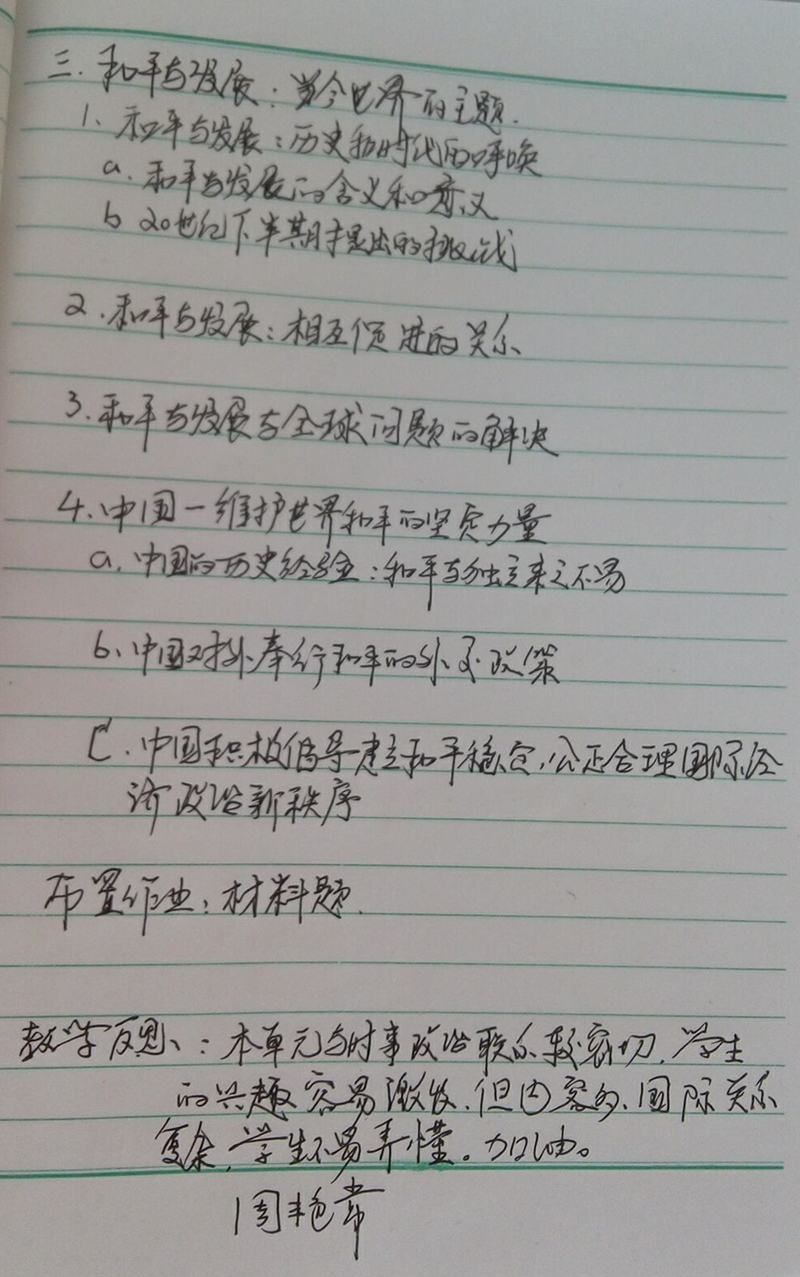 三.和平与发展:当今世界的主题.
1.和平与发展:历史和时代的呼唤
a.和平与发展的含义和意义
b 20世纪下半期提出的挑战
2.和平与发展:相互促进的关系
3.和平与发展与全球问题的解决
4.中国一维护世界和平的坚实力量
a.中国的历史经验:和平与独立来之不易
b.中国对外奉行和平的外交政策
C.中国积极倡导建立和平稳定,公正合理国际经
济政治新秩序
布置作业:材料题.
教学反思:本单元与时事政治联系较密切,学生
的兴趣容易激发,但内容多、国际关系
复杂,学生不易弄懂。加油。
周艳常